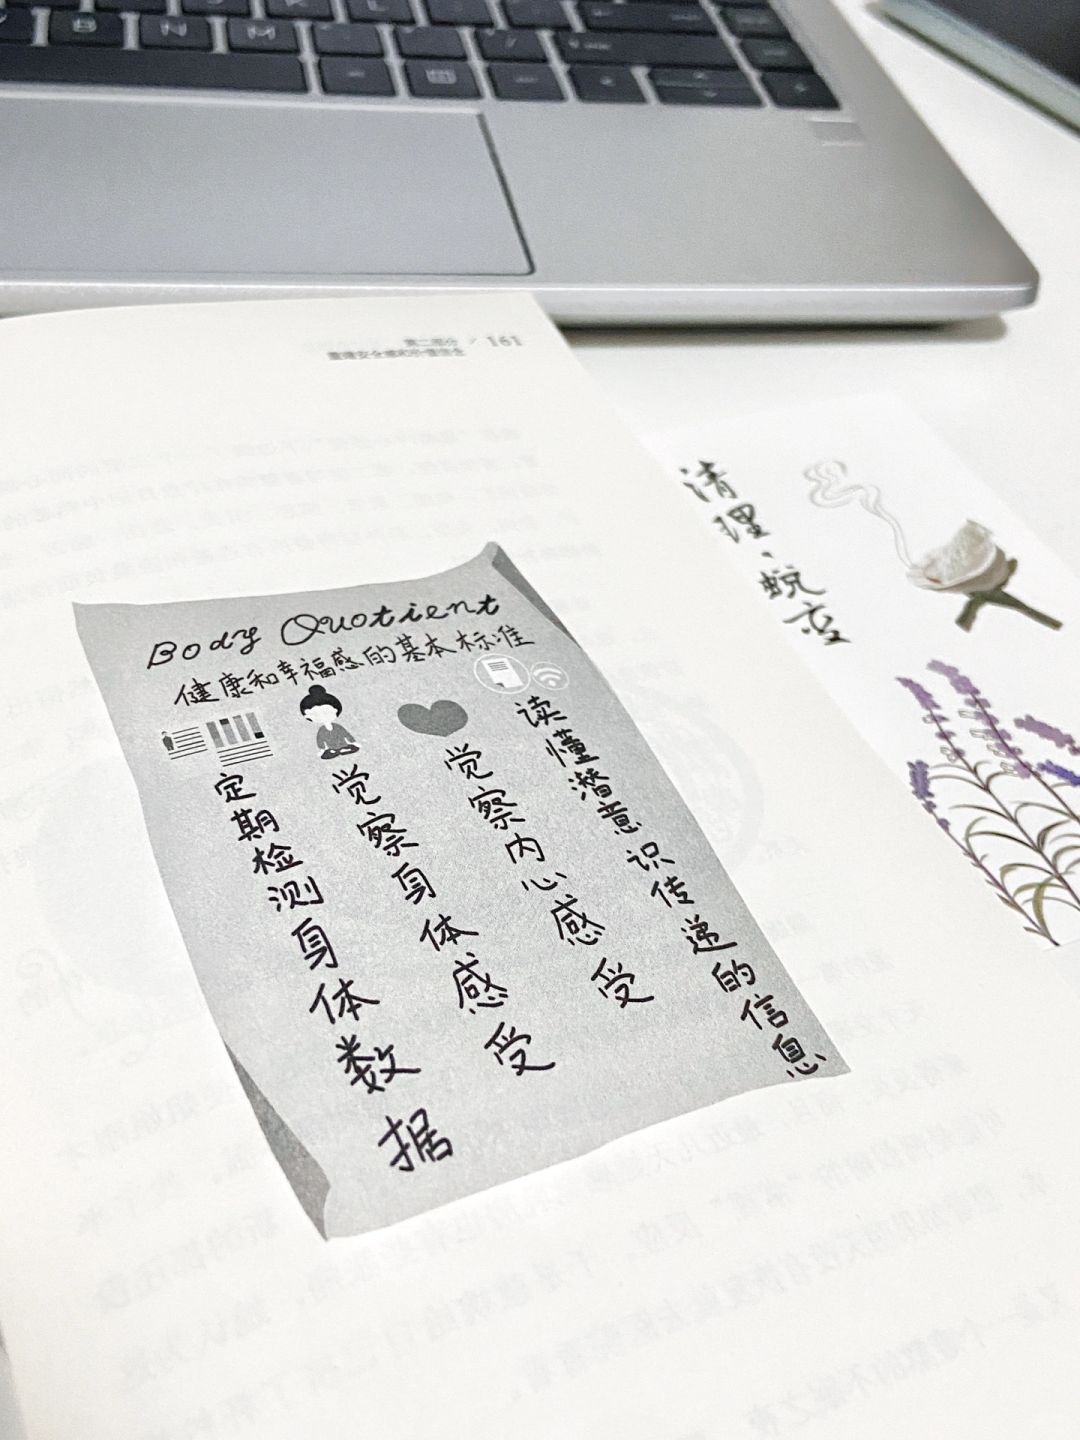 B N M
第二部分 / 161
重建安全感和价值信念
Body Quotient
健康和幸福感的基本标准
定期检测身体数据
觉察身体感受
觉察内心感受
读懂潜意识传递的信息
清理、蜕变